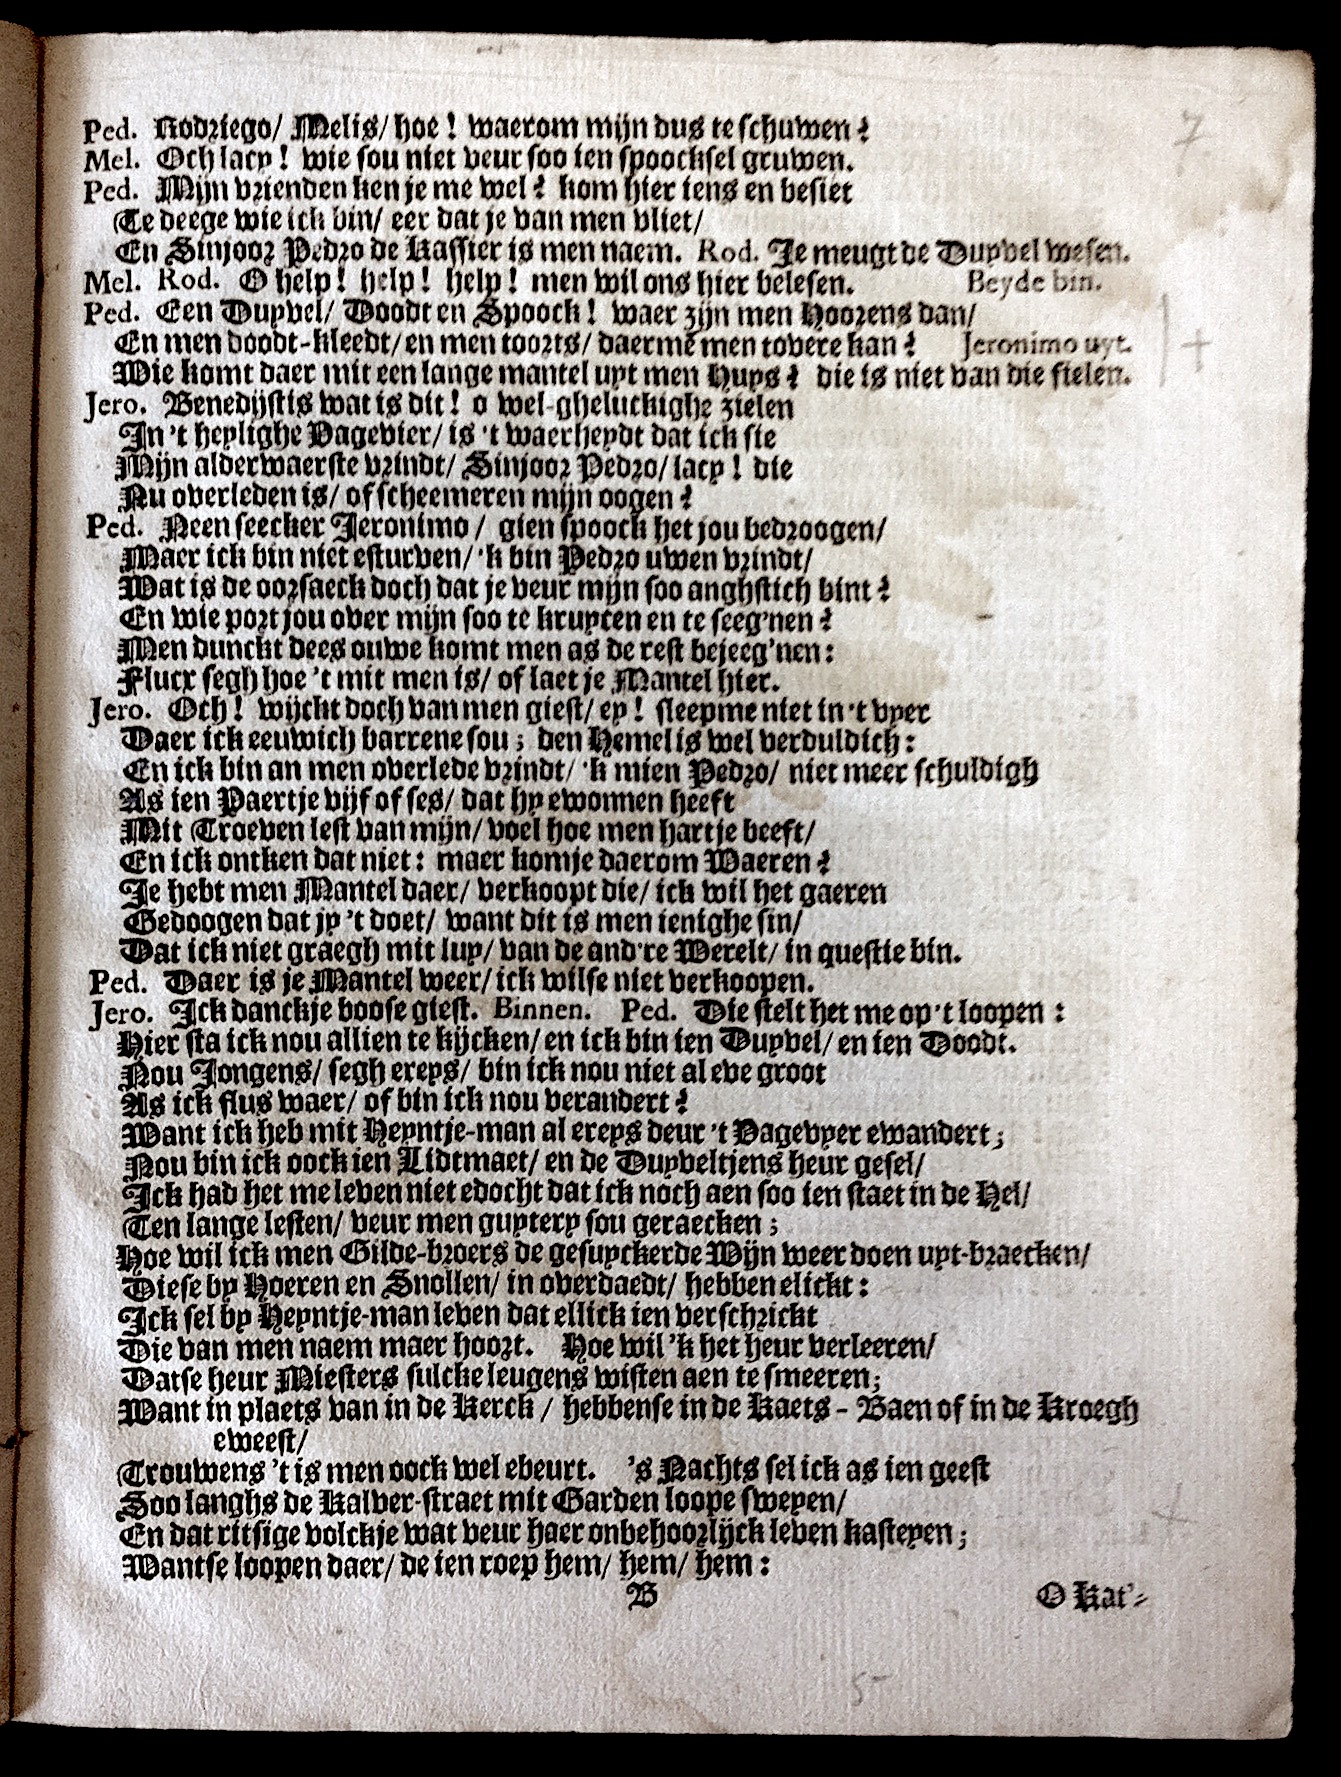 7
Ped. Rodriego/ Melis/ hoe! waerom mijn dus te schuwen?
Mel. Och lacy! wie sou niet veur soo ien spoocksel gruwen.
Ped. Mijn vrienden ken je me wel? kom hier iens en besiet
Te deege wie ick bin/ eer dat je van men vliet/
En Sinjoor Pedro de Kassier is men naem. Rod. Je meugt de Duyvel wesen.
Mel. Rod. O help! help! help! men wil ons hier belesen. Beyde bin.
Ped. Een Duyvel/ Doodt en Spoock! waer zijn men Hoorens dan/
En men doodt-kleedt/ en men toorts/ daermẽ men tovere kan? Jeronimo uyt.
Wie komt daer mit een lange mantel uyt men Huys? die is niet van die fielen.
Jero. Benedijstis wat is dit! o wel-gheluckighe zielen
In 't heylighe Vagevier/ is 't waerheydt dat ick sie
Mijn alderwaerste vrindt/ Sinjoor Pedro/ lacy! die
Nu overleden is/ of scheemeren mijn oogen?
Ped. Neen seecker Jeronimo/ gien spoock het jou bedroogen/
Maer ick bin niet esturven/ 'k bin Pedro uwen vrindt/
Wat is de oorsaeck doch dat je veur mijn soo anghstich bint?
En wie port jou over mijn soo te kruycen en te seeg'nen?
Men dunckt dees ouwe komt men as de rest bejeeg'nen:
Flucx segh hoe 't mit men is/ of laet je Mantel hier.
Jero. Och! wijckt doch van men giest/ ey! sleepme niet in 't vyer
Daer ick eeuwich barrene sou; den Hemel is wel verduldich:
En ick bin an men overlede vrindt/ 'k mien Pedro/ niet meer schuldigh
As ien Paertje vijf of ses/ dat hy ewonnen heeft
Mit Troeven lest van mijn/ voel hoe men hartje beeft/
En ick ontken dat niet: maer komje daerom Waeren?
Je hebt men Mantel daer/ verkoopt die/ ick wil het gaeren
Gedoogen dat jy 't doet/ want dit is men ienighe sin/
Dat ick niet graegh mit luy/ van de and're Werelt/ in questie bin.
Ped. Daer is je Mantel weer/ ick wilse niet verkoopen.
Jero. Ick danckje boose giest. Binnen. Ped. Die stelt het me op 't loopen:
Hier sta ick nou allien te kijcken/ en ick bin ien Duyvel/ en ien Doodt.
Nou Jongens/ segh ereys/ bin ick nou niet al eve groot
As ick flus waer/ of bin ick nou verandert?
Want ick heb mit Heyntje-man al ereys deur 't Vagevyer ewandert;
Nou bin ick oock ien Lidtmaet/ en de Duyveltjens heur gesel/
Ick had het me leven niet edocht dat ick noch aen soo ien staet in de Hel/
Ten lange lesten/ veur men guytery sou geraecken;
Hoe wil ick men Gilde-broers de gesuyckerde Wijn weer doen uyt-braecken/
Diese by Hoeren en Snollen/ in overdaedt/ hebben elickt:
Ick sel by Heyntje-man leven dat ellick ien verschrickt
Die van men naem maer hoort. Hoe wil 'k het heur verleeren/
Datse heur Miesters sulcke leugens wisten aen te smeeren;
Want in plaets van in de Kerck/ hebbense in de Kaets-Baen of in de Kroegh
eweest/
Trouwens 't is men oock wel ebeurt. 's Nachts sel ick as ien geest
Soo langhs de Kalver-straet mit Garden loope sweyen/
En dat ritsige volckje wat veur haer onbehoorlijck leven kasteyen;
Wantse loopen daer/ de ien roep hem/ hem/ hem:
B O Kat'-
5